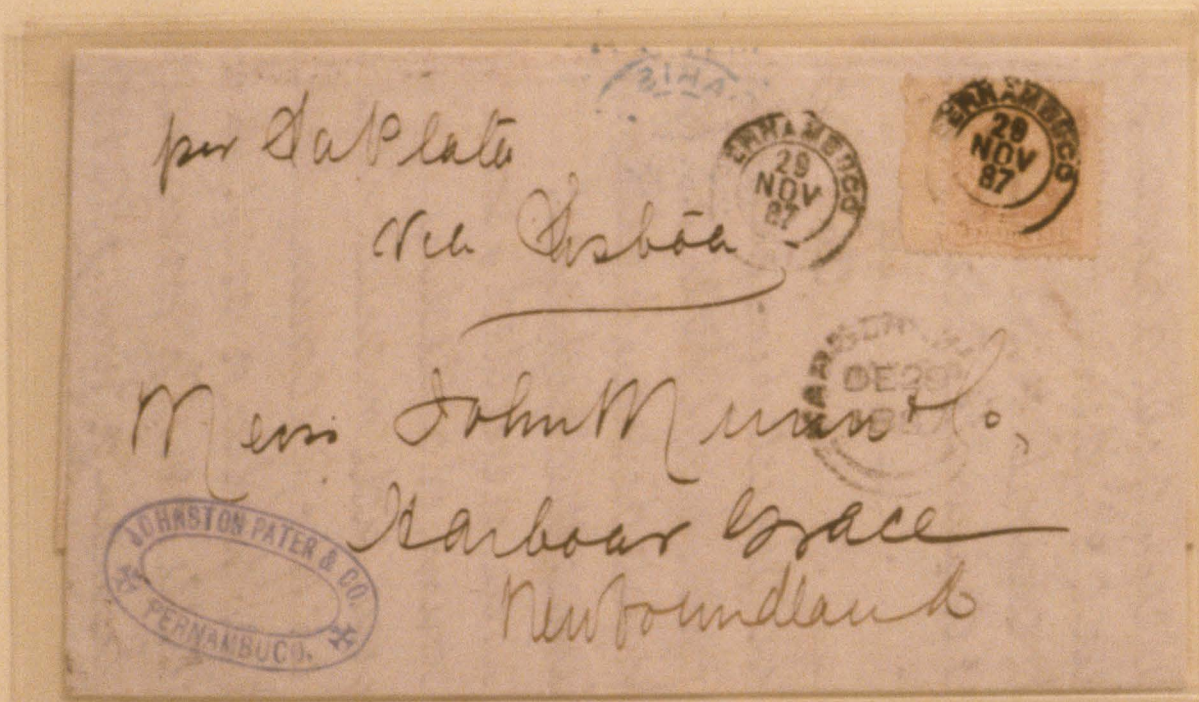 per La Plata
Via Lisbôa
PERNAMBUCO
29
NOV
87
PERNAMBUCO
29
NOV
87
DE 29
Mess John Munn & Co.,
Harbour Grace
Newfoundland
JOHNSTON PATER & CO.
PERNAMBUCO.